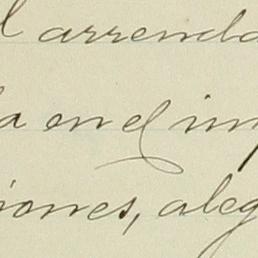 l arrenda
a en el im
iones, aleg